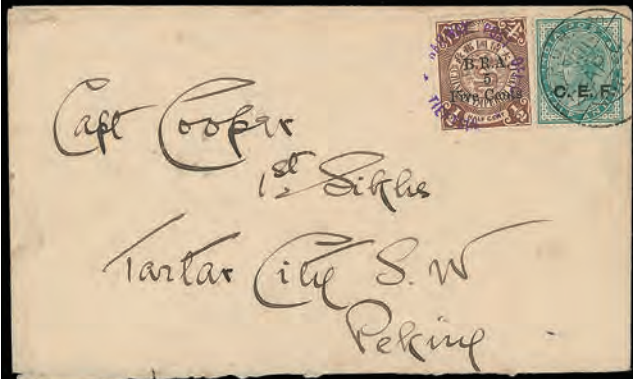 B.R.A.
5
Five Cents
HALF CENT
C.E.F.
Capt Cooper
1st Sikhs
Tartar City S.W
Peking